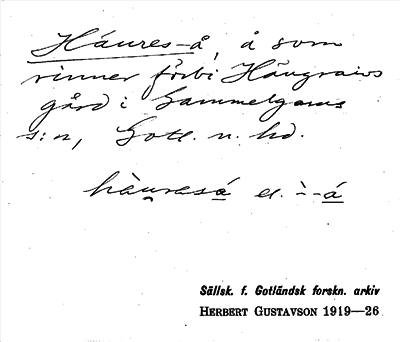 Háures-å, å som
rinner förbi Häugraivs
gård i Gammelgarns
s:n, Gotl. n. hd.
hàuresá el. ˋ--á
Sällsk. f. Gotländsk forskn. arkiv
HERBERT GUSTAVSON 1919—26